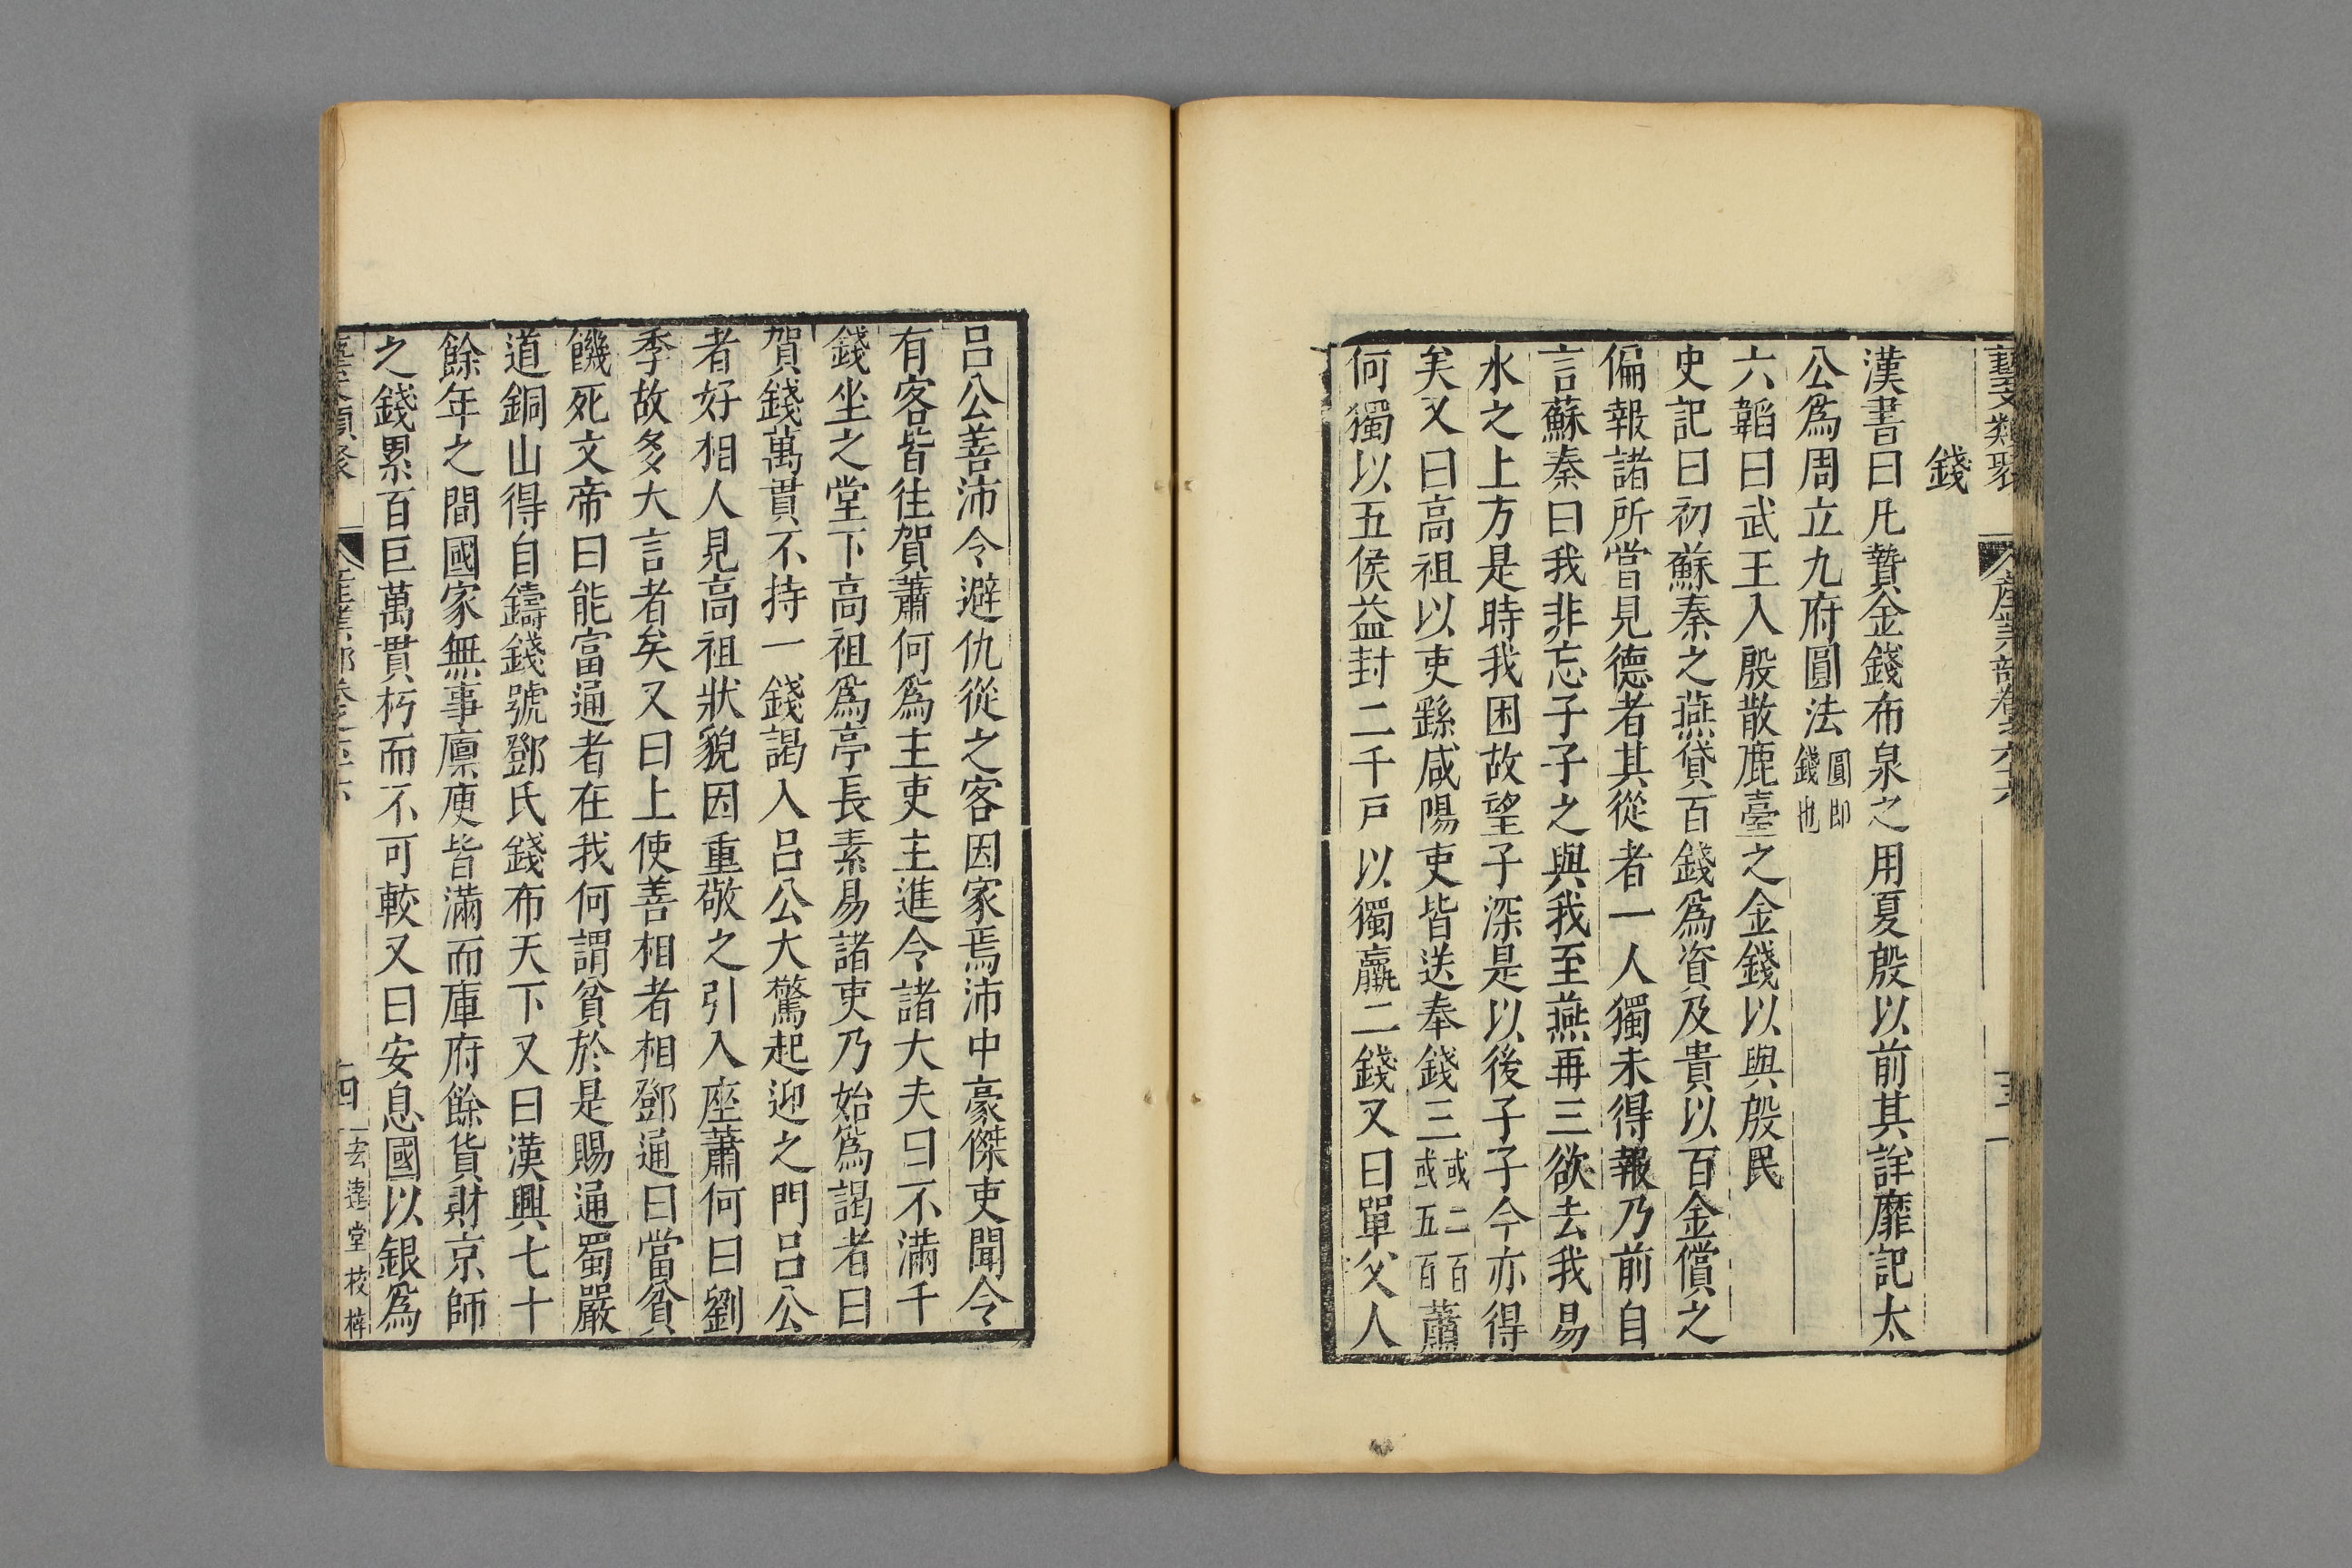 藝文類聚 產業部卷之六十六
錢
漢書曰凡贄金錢布泉之用夏殷以前其詳靡記太
公爲周立九府圓法圓即錢也
六韜曰武王入殷散鹿臺之金錢以與殷民
史記曰初蘇秦之燕貸百錢爲資及貴以百金償之
偏報諸所嘗見德者其從者一人獨未得報乃前自
言蘇秦曰我非忘子子之與我至燕再三欲去我易
水之上方是時我困故望子深是以後子子今亦得
矣又曰高祖以吏繇咸陽吏皆送奉錢三或二百或五百蕭
何獨以五侯益封二千戸以獨贏二錢又曰單父人
呂公善沛令避仇從之客因家焉沛中豪傑吏聞令
有客皆往賀蕭何爲主吏主進令諸大夫曰不滿千
錢坐之堂下高祖爲亭長素易諸吏乃始爲謁者曰
賀錢萬貫不持一錢謁入呂公大驚起迎之門呂公
者好相人見高祖狀貌因重敬之引入座蕭何曰劉
季故多大言者矣又曰上使善相者相鄧通曰當貧
饑死文帝曰能富通者在我何謂貧於是賜通蜀嚴
道銅山得自鑄錢號鄧氏錢布天下又曰漢興七十
餘年之間國家無事廪庾皆滿而庫府餘貨財京師
之錢累百巨萬貫朽而不可較又曰安息國以銀爲